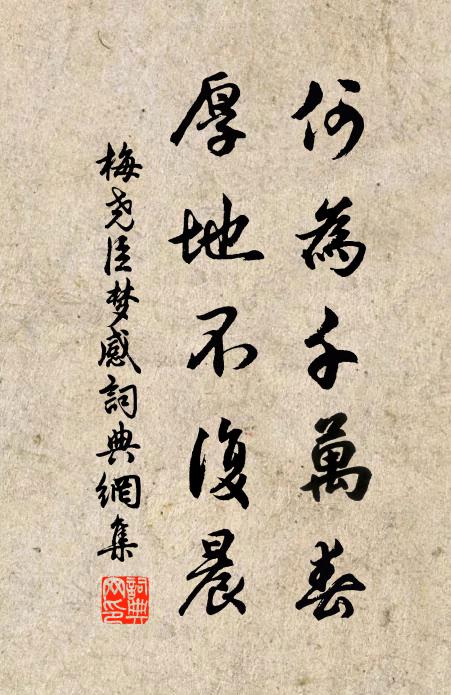 何為千萬春
厚地不復晨
梅尧臣梦感詞典網集
詞典
网印